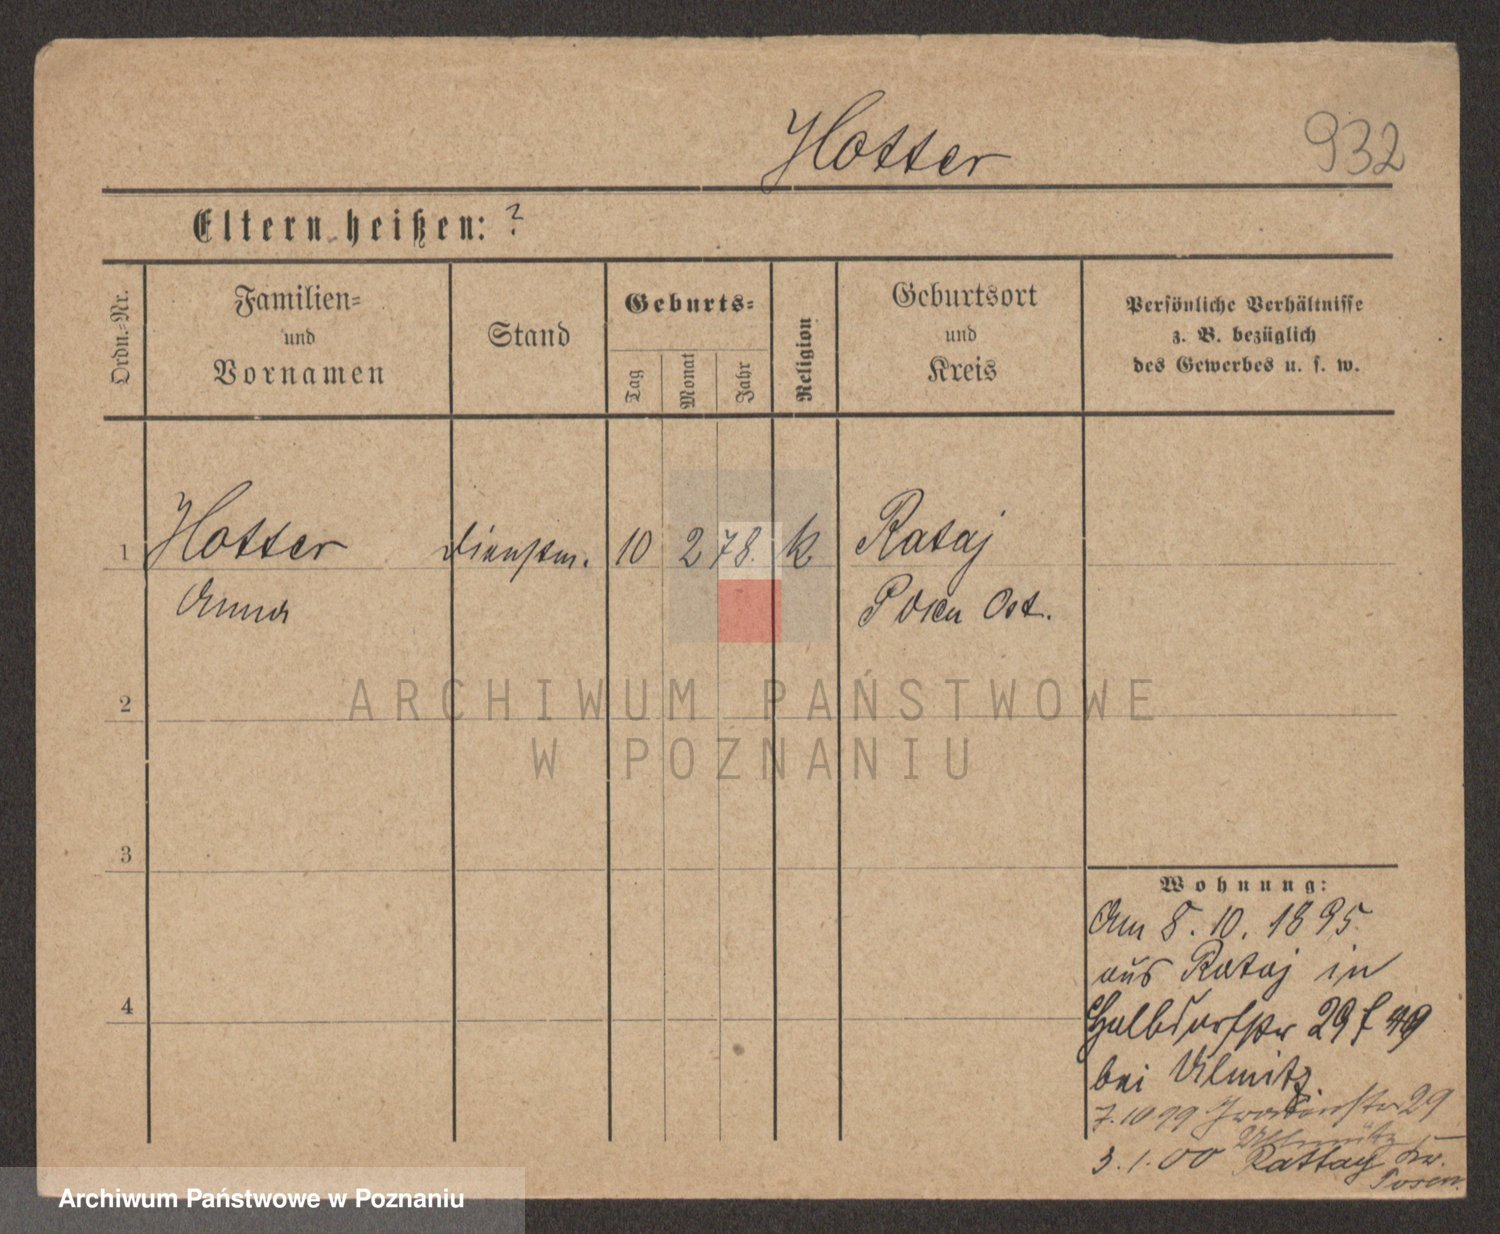 Hotter
932
Eltern heißen: ?
Ordn.-Nr.
Familien-
und
Vornamen
Stand
Geburts-
Tag
Monat
Jahr
Religion
Geburtsort
und
Kreis
Persönliche Verhältnisse
z. B. bezüglich
des Gewerbes u. s. w.
1
Hotter
Dienstm.
10
2
78.
k.
Rataj
Anna
Posen Ost.
ARCHIWUM PAŃSTWOWE
W POZNANIU
2
3
4
Wohnung:
Am 8. 10. 1895
aus Rataj in
Halbdorfstr 29
bei Ulmitz.
7. 10 99 29
3. 1. 00 Rattay Kr.
Posen.
Archiwum Państwowe w Poznaniu